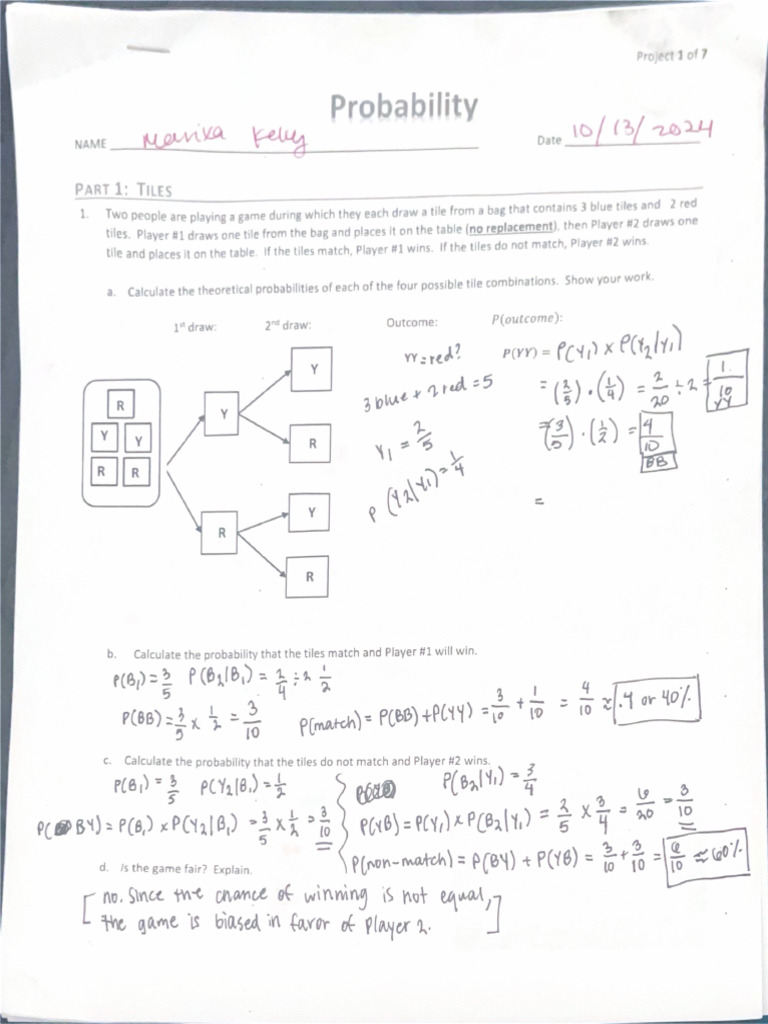 Project 1 of 7
Probability
NAME Marika Kelly
Date 10/13/2024
PART 1: TILES
1. Two people are playing a game during which they each draw a tile from a bag that contains 3 blue tiles and 2 red
tiles. Player #1 draws one tile from the bag and places it on the table (no replacement), then Player #2 draws one
tile and places it on the table. If the tiles match, Player #1 wins. If the tiles do not match, Player #2 wins.
a. Calculate the theoretical probabilities of each of the four possible tile combinations. Show your work.
1st draw: 2nd draw: Outcome: P(outcome):
R
Y Y
R R
Y
R
Y
R
Y
R
YY=red?
3 blue + 2 red = 5
Y₁ = 2/5
P(Y2|Y1) = 1/4
P(YY) = P(Y₁) × P(Y₂|Y₁)
= (2/5) · (1/4) = 2/20 ÷ 2 = 1/10 YY
= (3/5) · (1/2) = 4/10 BB
=
b. Calculate the probability that the tiles match and Player #1 will win.
P(B₁) = 3/5 P(B₂|B₁) = 2/4 ÷ 2 1/2
P(BB) = 3/5 × 1/2 = 3/10 P(match) = P(BB) + P(YY) = 3/10 + 1/10 = 4/10 ≈ .4 or 40%
c. Calculate the probability that the tiles do not match and Player #2 wins.
P(B₁) = 3/5 P(Y₂|B₁) = 1/2
P(BY) = P(B₁) × P(Y₂|B₁) = 3/5 × 1/2 = 3/10
P(B₂|Y₁) = 3/4
P(YB) = P(Y₁) × P(B₂|Y₁) = 2/5 × 3/4 = 6/20 = 3/10
P(non-match) = P(BY) + P(YB) = 3/10 + 3/10 = 6/10 ≈ 60%
d. Is the game fair? Explain.
[no. Since the chance of winning is not equal,
the game is biased in favor of Player 2.]